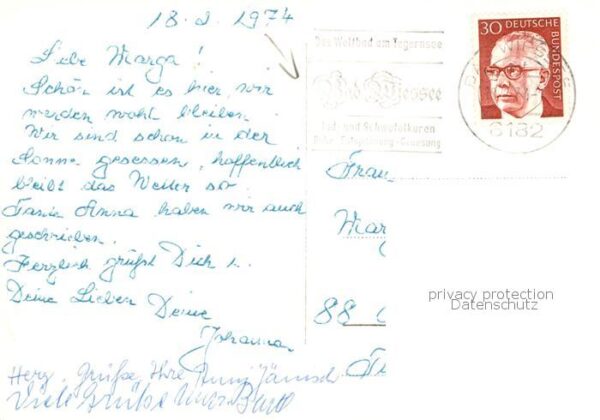 18.2.1974
Liebe Marga!
Schön ist es hier, wir
werden wohl bleiben.
Wir sind schon in der
Sonne gesessen, hoffentlich
bleibt das Wetter so.
Tante Anna haben wir auch
geschrieben.
Herzlich grüßt Dich u.
Deine Lieben Deine
Johanna
Herz. Grüße, Ihre
Viele Grüße
Das Weltbad am Tegernsee
Bad Wiessee
Jod- und Schwefelkuren
Ruhe · Entspannung · Genesung
30 DEUTSCHE
BUNDESPOST
8182
Frau
Mar
88
privacy protection
Datenschutz